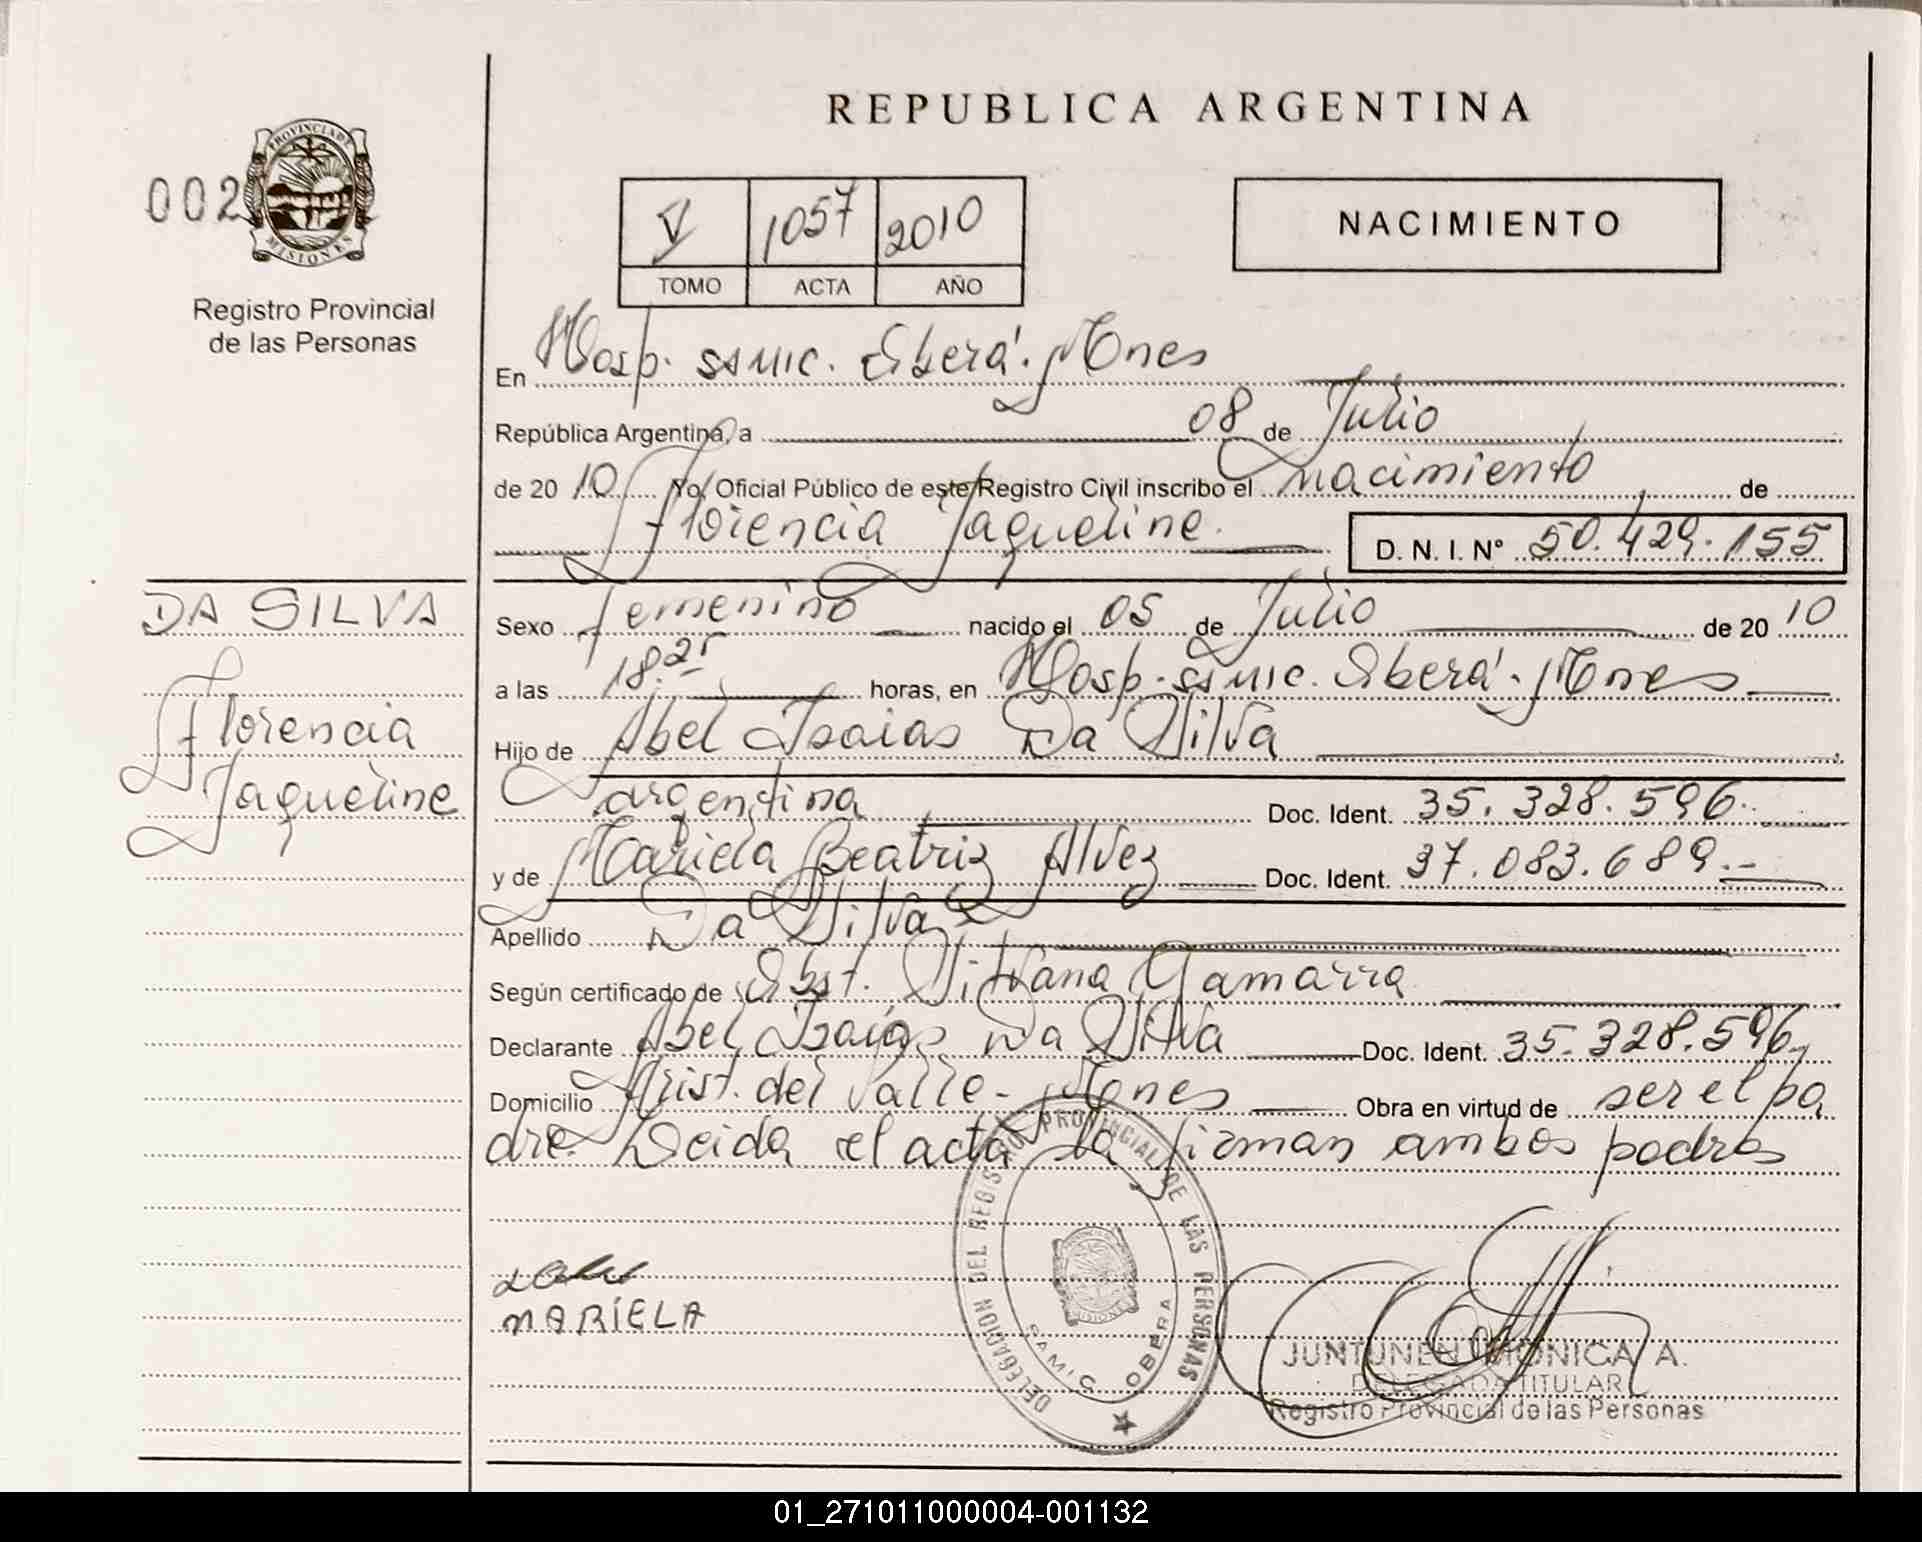 REPUBLICA ARGENTINA
002
PROVINCIA DE
MISIONES
Registro Provincial
de las Personas
V 1057 2010
TOMO ACTA AÑO
NACIMIENTO
En Hosp. SAMIC. Oberá. Mnes
República Argentina, a 08 de Julio
de 20 10 Yo, Oficial Público de este Registro Civil inscribo el nacimiento de
Florencia Jaqueline. D. N. I. Nº 50.429.155
DA SILVA
Florencia
Jaqueline
Sexo femenino nacido el 05 de Julio de 20 10
a las 18.25 horas, en Hosp. SAMIC. Oberá. Mnes
Hijo de Abel Isaias Da Silva
argentina Doc. Ident. 35.328.596.
y de Mariela Beatriz Alvez Doc. Ident. 37.083.689.-
Apellido Da Silva
Según certificado de Obst. Silvana Gamarra
Declarante Abel Isaias Da Silva Doc. Ident. 35.328.596
Domicilio Arist. del Valle - Mones Obra en virtud de ser el pa
dre. Leida el acta la firman ambos padres
DELEGACION DEL REGISTRO PROVINCIAL DE LAS PERSONAS
SAMIC OBERA
MISIONES
MARIELA
JUNTUNEN MONICA A.
DELEGADA TITULAR
Registro Provincial de las Personas
01_271011000004-001132